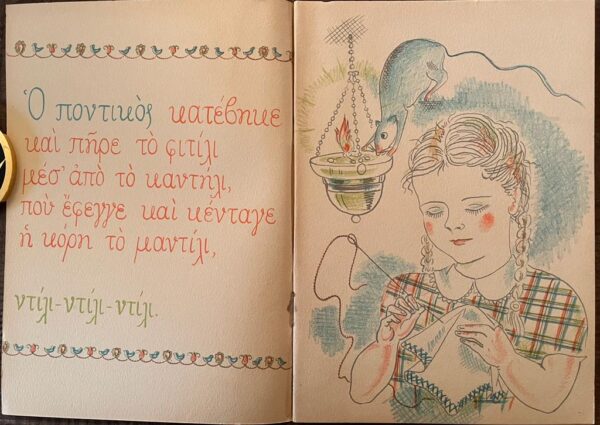 Ὁ ποντικὸς κατέβηκε
καὶ πῆρε τὸ φιτίλι
μέσ' ἀπὸ τὸ καντήλι,
ποὺ ἔφεγγε καὶ κένταγε
ἡ κόρη τὸ μαντίλι,
ντίλι-ντίλι-ντίλι.